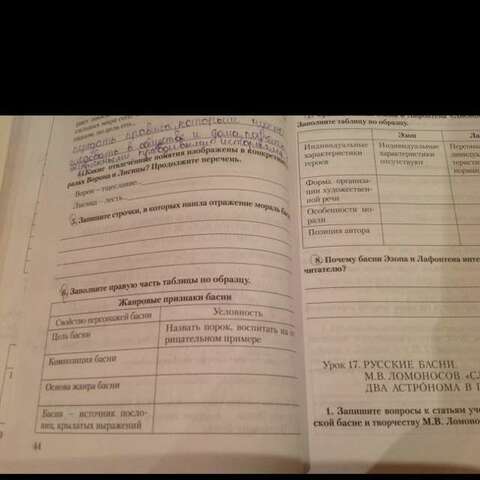 4. Какие отвлечённые понятия изображены в конкретных
разах Ворона и Лисицы? Продолжите перечень.
Ворон – тщеславие,
Лисица – лесть,
5. Запишите строчки, в которых нашла отражение мораль бас
6. Заполните правую часть таблицы по образцу.
Жанровые признаки басни
Свойство персонажей басни
Условность
Цель басни
Назвать порок, воспитать на
рицательном примере
Композиция басни
Основа жанра басни
Басня – источник посло-
виц, крылатых выражений
44
Заполните таблицу по образцу.
Эзоп
Ла
Индивидуальные
характеристики
героев
Индивидуальные
характеристики
отсутствуют
Форма организа-
ции художествен-
ной речи
Особенности мо-
рали
Позиция автора
8. Почему басни Эзопа и Лафонтена инте
читателю?
Урок 17. РУССКИЕ БАСНИ.
М.В. ЛОМОНОСОВ. «СЛ
ДВА АСТРОНОМА В П
1. Запишите вопросы к статьям уче
ской басне и творчеству М.В. Ломоно